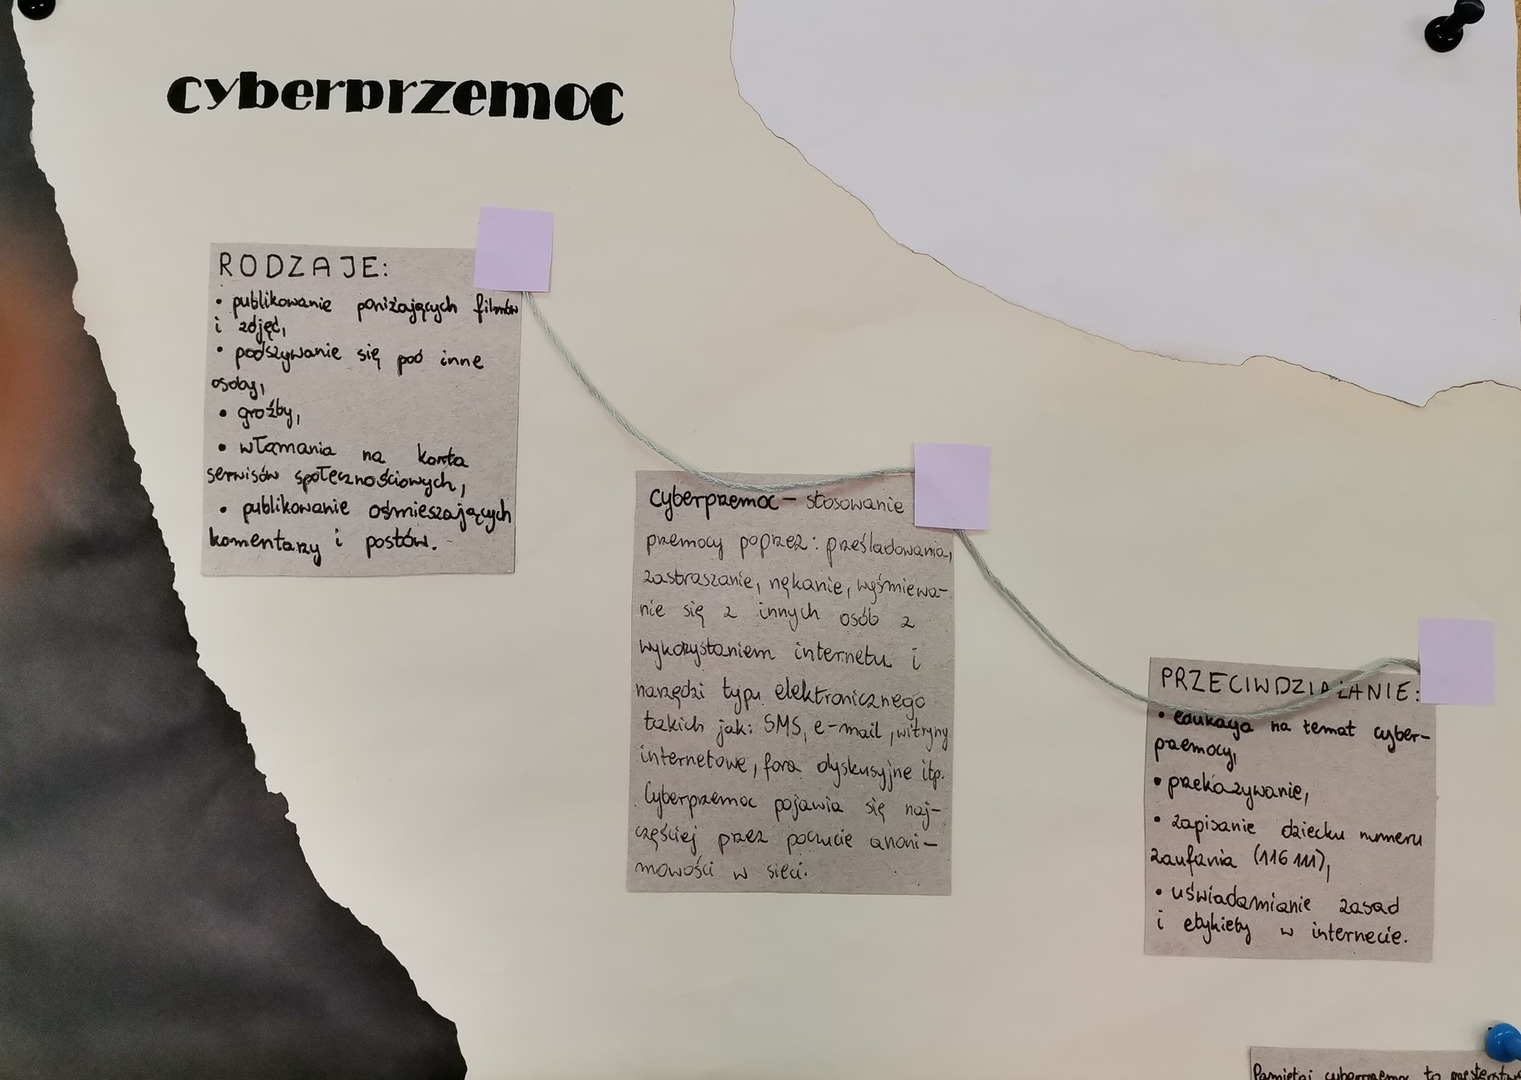 cyberprzemoc
RODZAJE:
• publikowanie poniżających filmów
i zdjęć,
• podszywanie się pod inne
osoby,
• groźby,
• włamania na konta
serwisów społecznościowych,
• publikowanie ośmieszających
komentarzy i postów.
cyberprzemoc - stosowanie
przemocy poprzez: prześladowania,
zastraszanie, nękanie, wyśmiewa-
nie się z innych osób z
wykorzystaniem internetu i
narzędzi typu elektronicznego
takich jak: SMS, e-mail, witryny
internetowe, fora dyskusyjne itp.
Cyberprzemoc pojawia się naj-
częściej przez poczucie anoni-
mowości w sieci.
PRZECIWDZIAŁANIE:
• edukacja na temat cyber-
przemocy,
• przekazywanie,
• zapisanie dziecku numeru
zaufania (116 111),
• uświadamianie zasad
i etykiety w internecie.
Pamiętaj cyberprzemoc to przestępstwo